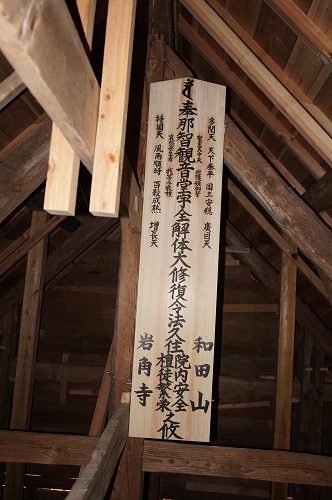 多聞天 天下泰平 国土安穏 廣目天
奉那智観音堂宇全解体大修復令法久住院内安全檀徒繁栄之攸
持国天 風雨順時 百穀成熟 増長天
和田山
岩角寺